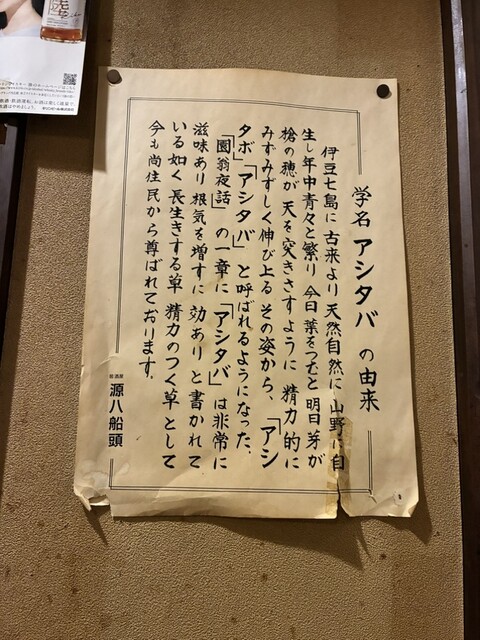 学名 アシタバ の由来
伊豆七島に古来より天然自然に山野に自
生し年中青々と繁り今日葉をつむと明日芽が
槍の穂が天を突きさすように精力的に
みずみずしく伸び上るその姿から、「アシ
タボ」「アシタバ」と呼ばれるようになった、
「園翁夜話」の一章に「アシタバ」は非常に
滋味あり根気を増すに効ありと書かれて
いる如く長生きする草精力のつく草として
今も尚住民から尊ばれております。
居酒屋
源八船頭